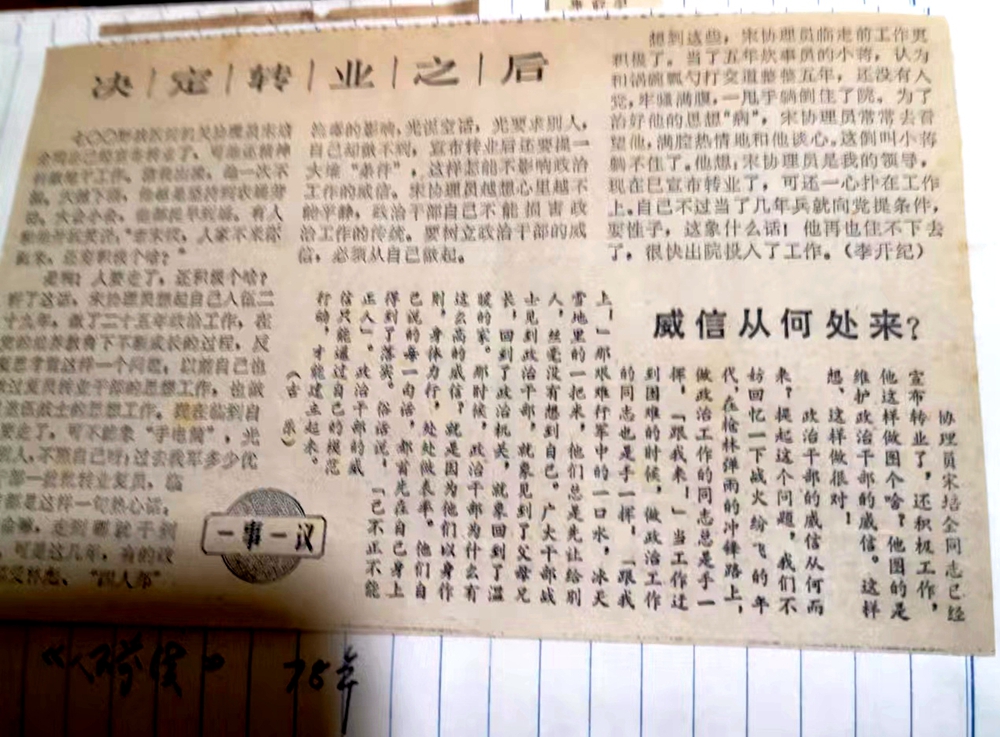 决定转业之后
七〇〇野战医院的某协理员宋培
金同志已经宣布转业了，可他还精神
下。大操下雨，他都是坚持到农场劳
动。大会小会，他都提早到场。有人
和他开玩笑说：“老宋我，人家不来你
偏来，还穷积极个啥？”
是啊！人要走了，还积极个啥？
听了这话，宋协理员想起自己入伍二
十九年，做了二十五年政治工作，在
党的培养教育下不断成长的过程，反
复思考着这样一个问题，以前自己也
做过复员转业干部的思想工作，也做
过退伍战士的思想工作。现在临到自
要走了，可不能象“手电筒”，光
别人，不照自己呀！过去我军多少优
部一批批转业复员，临
都是这样一句热心话，
命嘛，走到哪就干到
，可是这几年，有的政
“四人帮”
的毒的影响，光说空话，光要求别人，
自己却做不到，宣布转业后还要提一
大堆“条件”，这样怎能不影响政治
工作的威信。宋协理员越想心里越不
能平静，政治干部自己不能损害政
治工作的传统。要树立政治干部的威
信，必须从自己做起。
想到这些，宋协理员临走前工作更
积极了。当了五年炊事员的小蒋，认为
和锅碗瓢勺打交道整整五年，还没有入
党，牢骚满腹，一甩手躺倒住了院。为了
治好他的思想“病”，宋协理员常常去看
望他，满腔热情地和他谈心。这倒叫小蒋
躺不住了。他想：宋协理员是我的领导，
现在已宣布转业了，可还一心扑在工作
上。自己不过当了几年兵就向党提条件，
耍性子，这象什么话！他再也住不下去
了，很快出院投入了工作。（李开纪）
威信从何处来？
协理员宋培金同志已经
宣布转业了，还积极工作，
他这样做图个啥？他图的是
维护政治干部的威信。这样
想、这样做很对！
政治干部的威信从何而
来？提起这个问题，我们不
妨回忆一下战火纷飞的年
代，在枪林弹雨的冲锋路上，
做政治工作的同志总是手一
挥，“跟我来！”当工作迁
到困难的时候，做政治工作
的同志也是手一挥，“跟我
上！”那艰难行军中的一口水，冰天
雪地里的一把米，他们总是先让给别
人，丝毫没有想到自己。广大干部战
士见到政治干部，就象见到了父母兄
长，回到了政治机关，就象回到了温
暖的家。那时候，政治干部为什么有
这么高的威信？就是因为他们以身作
则，身体力行，处处做表率。他们自
己说的每一句话，都首先在自己身上
得到了落实。俗话说，“己不正不能
正人”。政治干部的威
信只能通过自己的模范
行动，才能建立起来。
（古乐）
一事一议
78年